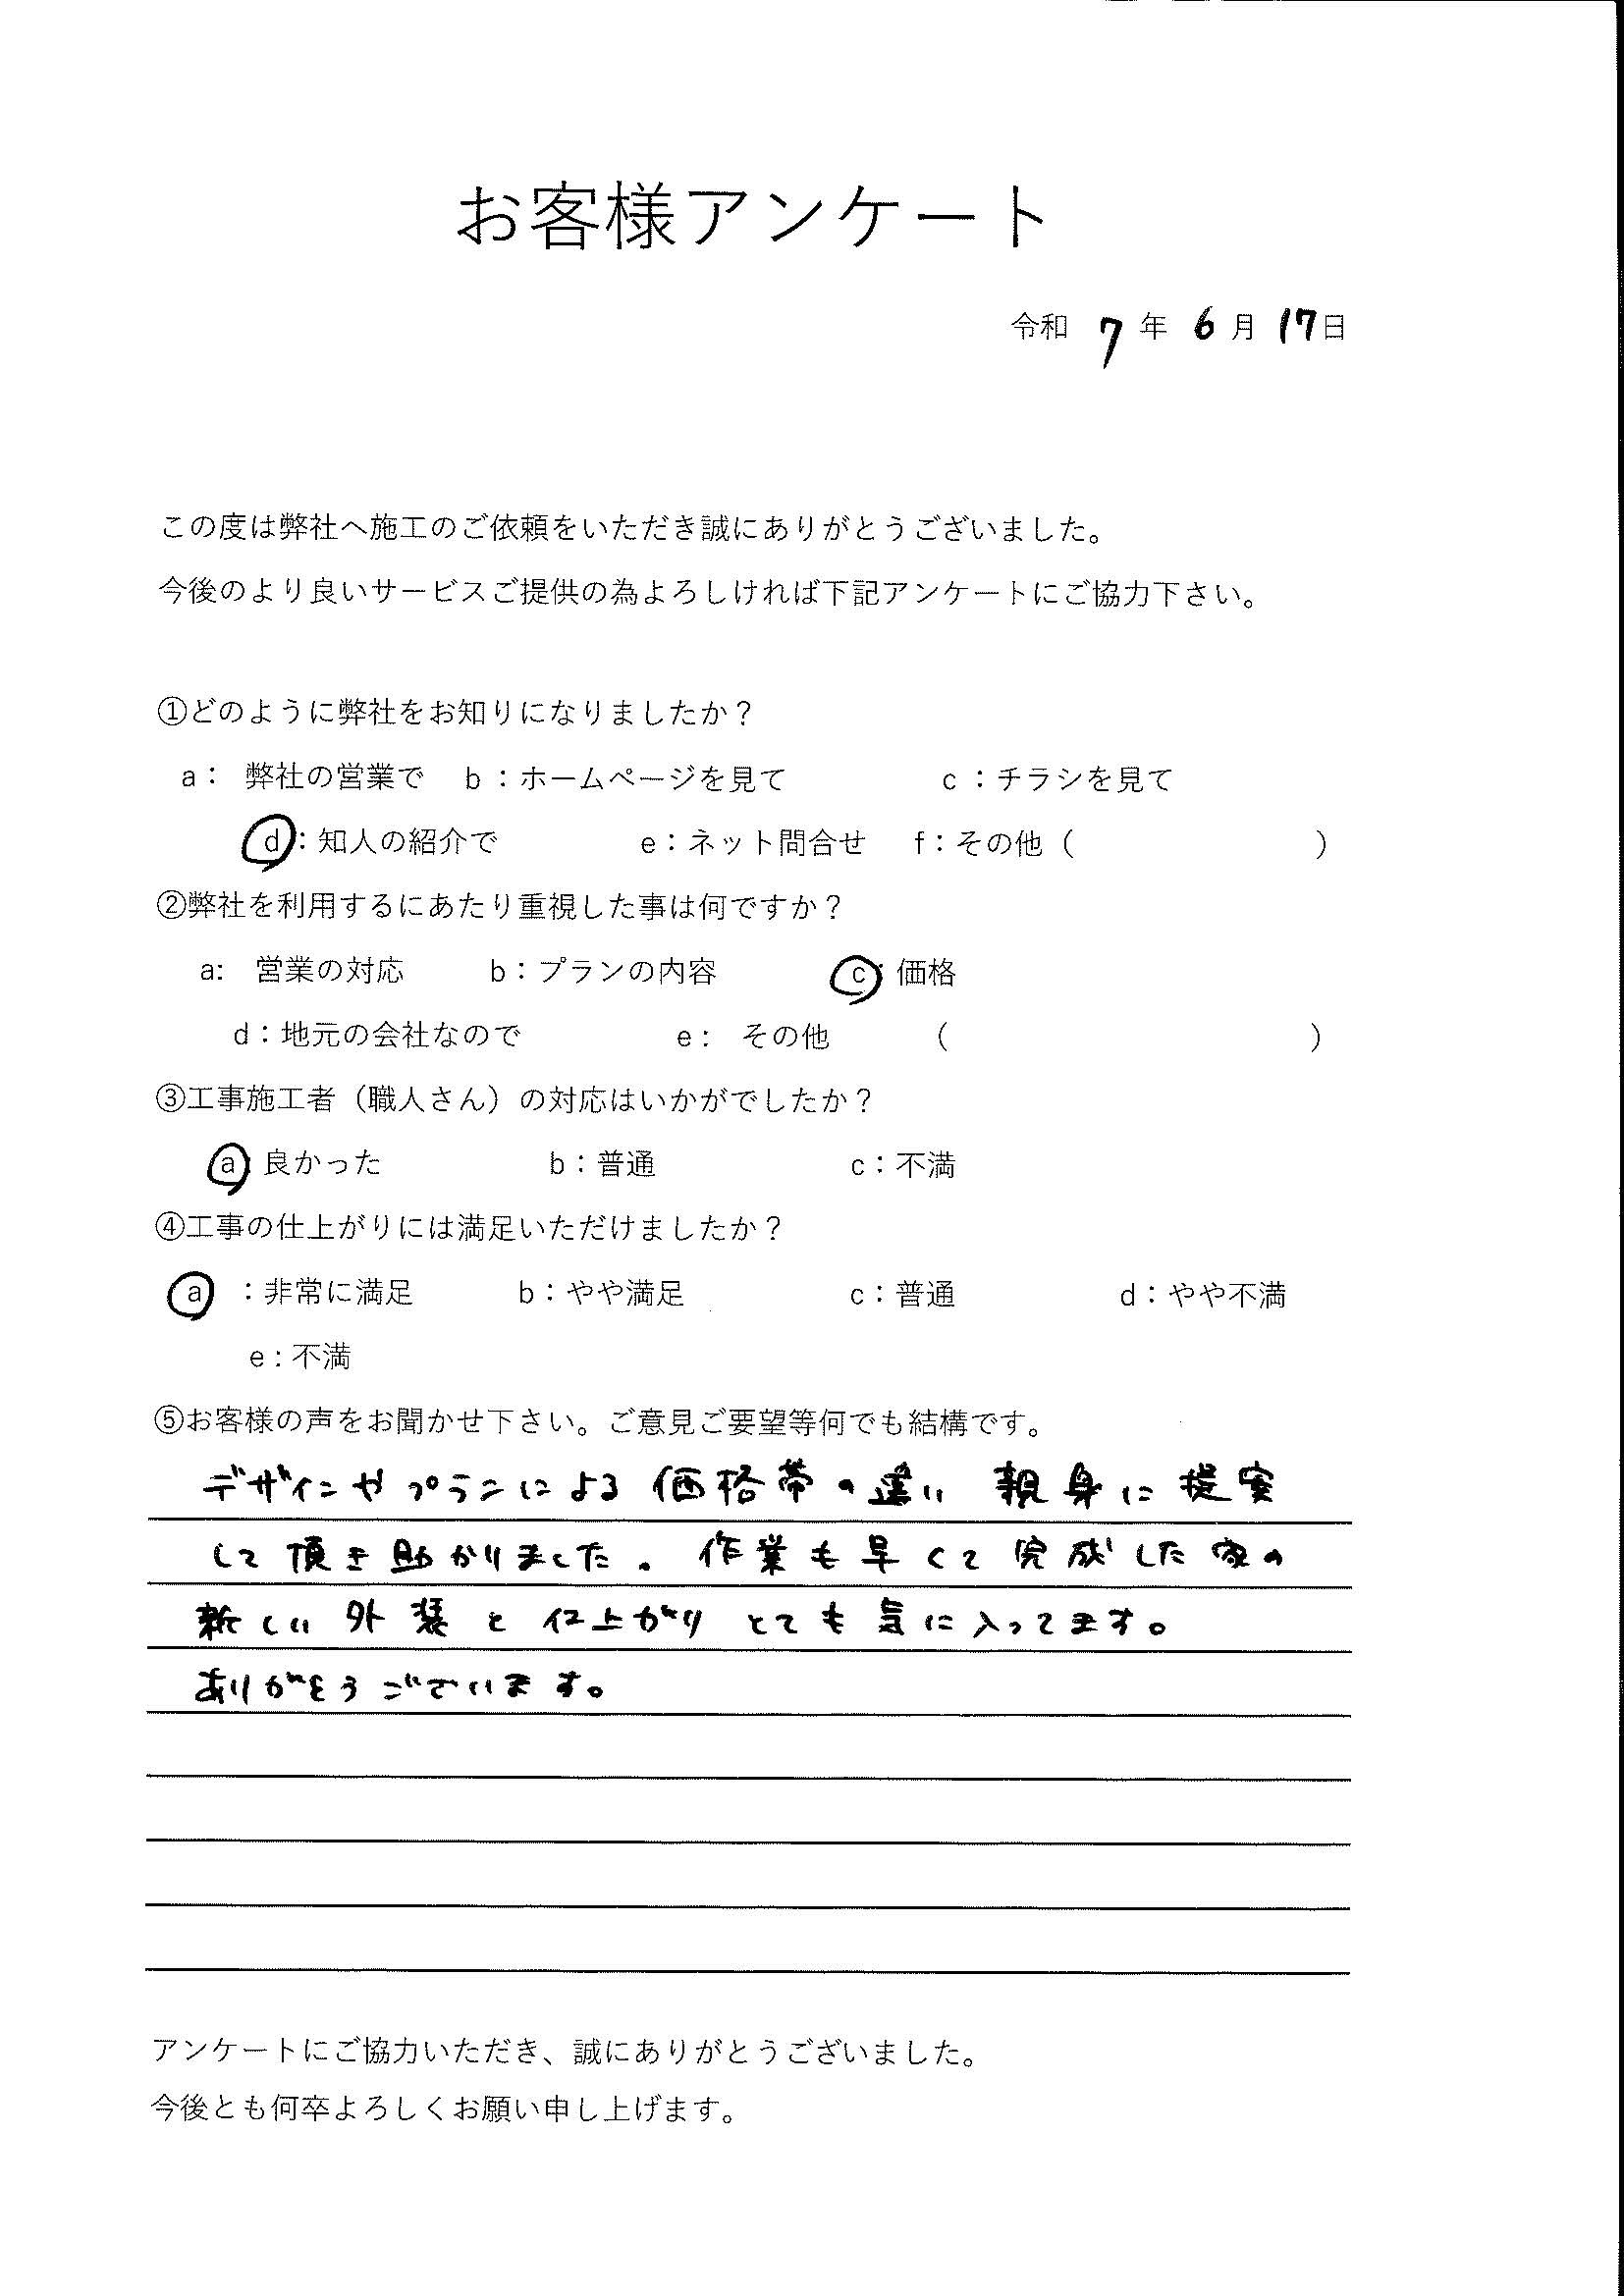 お客様アンケート
令和 7 年 6 月 17日
この度は弊社へ施工のご依頼をいただき誠にありがとうございました。
今後のより良いサービスご提供の為よろしければ下記アンケートにご協力下さい。
①どのように弊社をお知りになりましたか？
a： 弊社の営業で b：ホームページを見て c：チラシを見て
d：知人の紹介で e：ネット問合せ f：その他（ ）
②弊社を利用するにあたり重視した事は何ですか？
a: 営業の対応 b：プランの内容 c：価格
d：地元の会社なので e: その他 （ ）
③工事施工者（職人さん）の対応はいかがでしたか？
a：良かった b：普通 c：不満
④工事の仕上がりには満足いただけましたか？
a ：非常に満足 b：やや満足 c：普通 d：やや不満
e：不満
⑤お客様の声をお聞かせ下さい。ご意見ご要望等何でも結構です。
デザインやプランによる価格帯の違い 親身に提案
して頂き助かりました。作業も早くて完成した家の
新しい外装と仕上がりとても気に入ってます。
ありがとうございます。
アンケートにご協力いただき、誠にありがとうございました。
今後とも何卒よろしくお願い申し上げます。